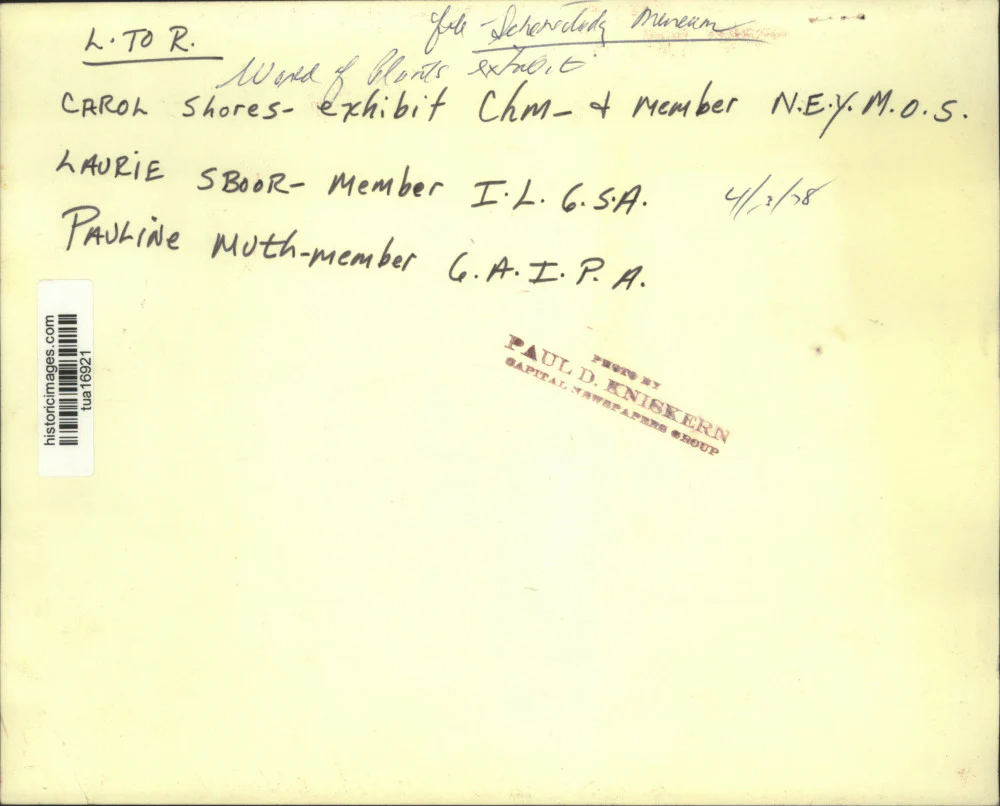 file - Schenectady Museum
L. TO R.
World of Plants exhibit
CAROL Shores - exhibit Chm - & member N.E.Y.M.O.S.
LAURIE SBOOR - member I.L.G.S.A.
4/ /78
PAULINE MUth - member G.A.I.P.A.
historicimages.com
tua16921
PHOTO BY
PAUL D. KNISKERN
CAPITAL NEWSPAPERS GROUP